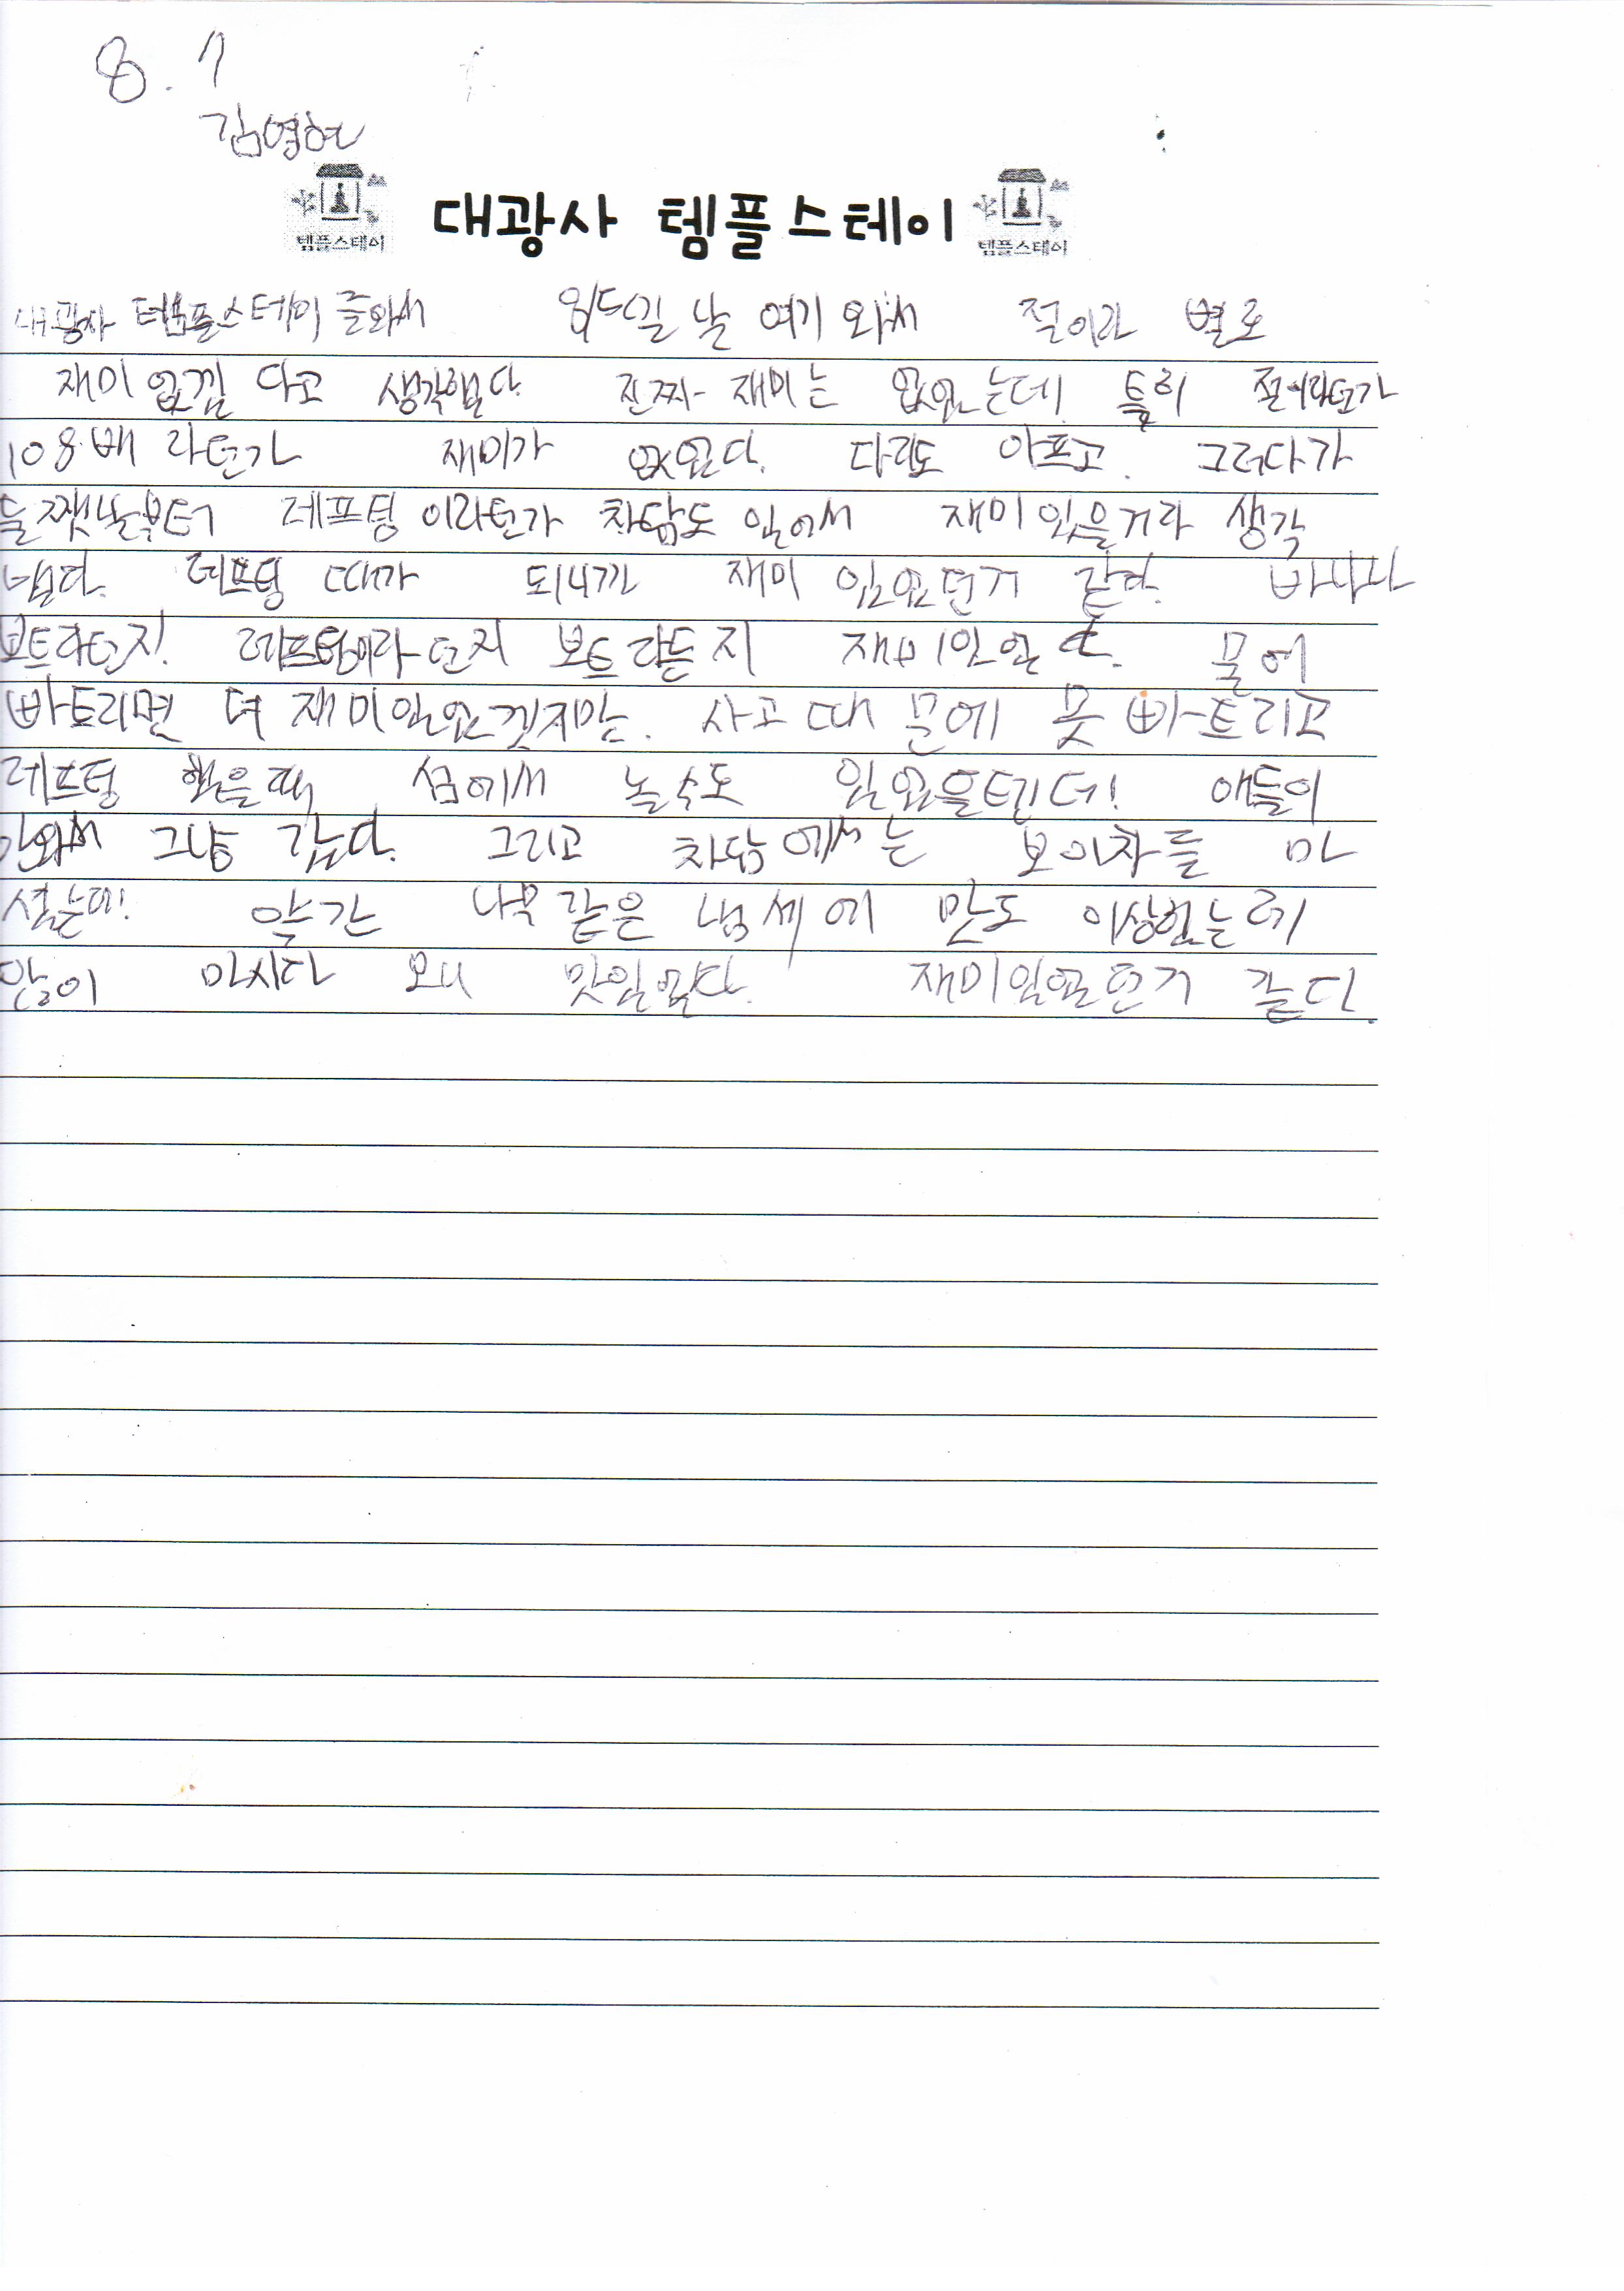 8. 1
김영헌
템플스테이 대광사 템플스테이 템플스테이
대광사 템플스테이 날 여기 와서 절이라 별로
재미 없낄 다고 생각했다 진짜 재미는 없었는데 특히 절이라던가
108배 라던가 재미가 없었다. 다리도 아프고. 그러다가
둘쨋날부터 레프팅 이라던가 차담도 있어서 재미 있을거라 생각
했다. 레프팅 때가 되니까 재미 있었던거 같다. 바나나
보트라던지! 레프팅이라던지 보트라든지 재미있었다. 물에
빠트리면 더 재미있었겠지만. 사고 때문에 못 빠트리고
레프팅 했을때 섬에서 놀수도 있었을텐데! 애들이
안와서 그냥 갔다. 그리고 차담에서는 보이차를 마
셨는데! 약간 나무 같은 냄세에 맛도 이상했는데
많이 마시다 보니 맛있었다. 재미있었던거 같다.